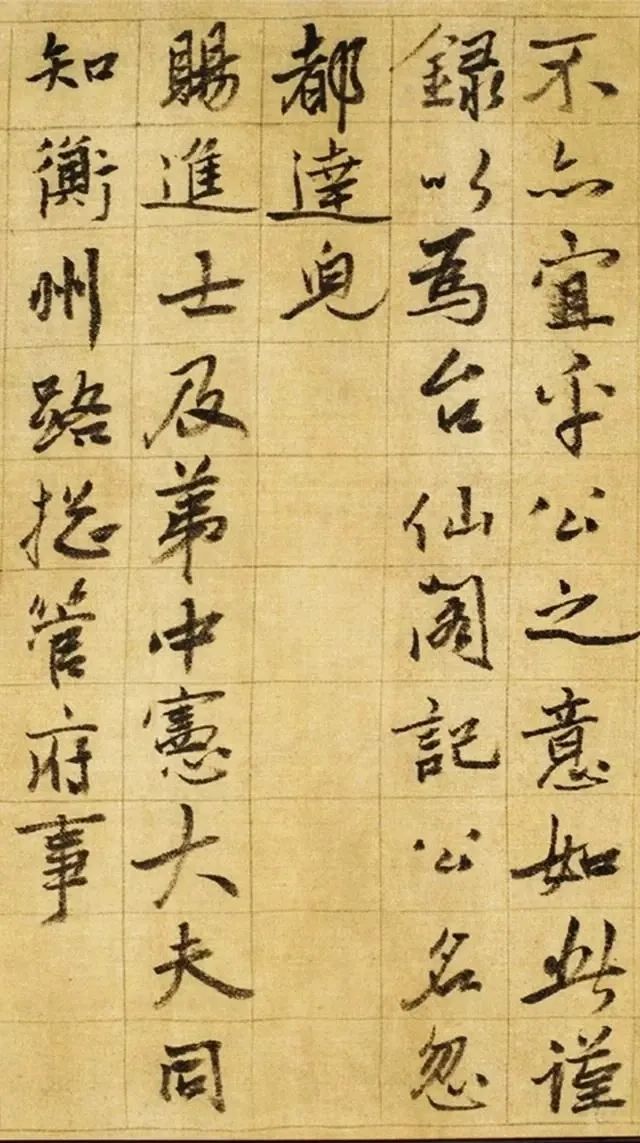 不亦宜乎公之意如此謹
録以爲台仙閣記公名忽
都達皃
賜進士及弟中憲大夫同
知衡州路揔管府事